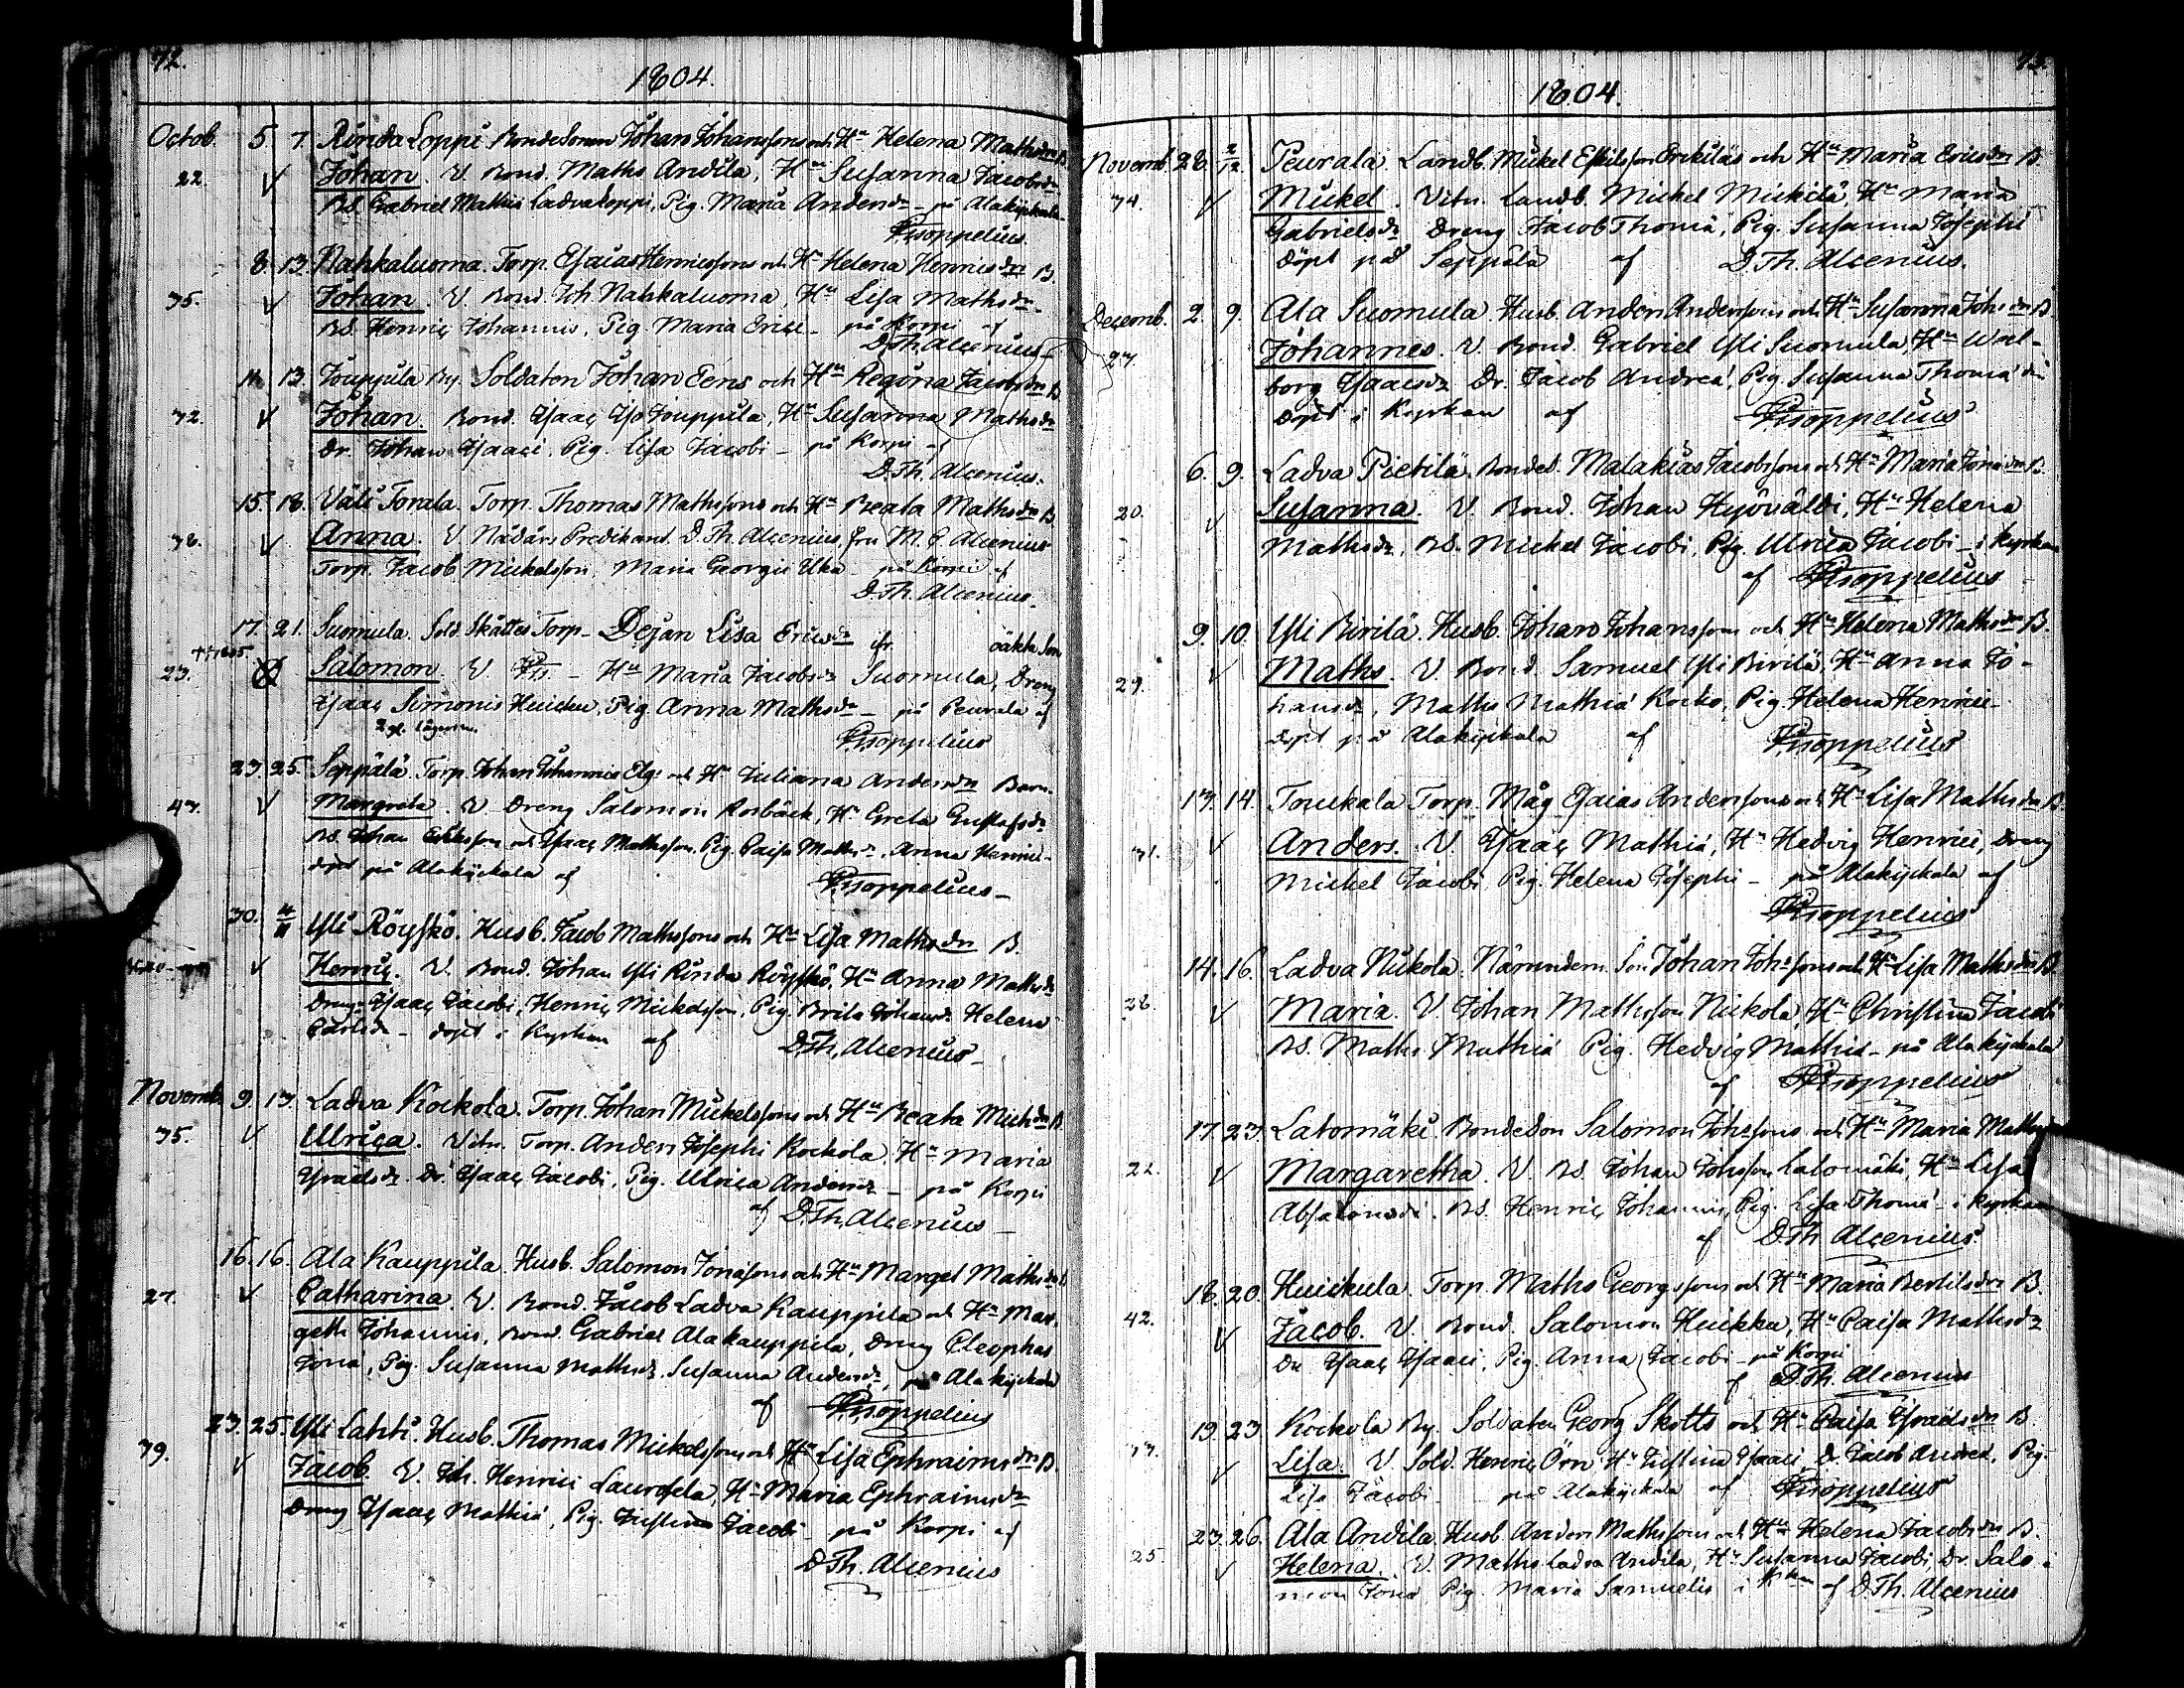 72.
1804.
Octob. 5. 7. Rinda Loppi. Bondesonen Johan Johanssons och Hu Helena Mathsdrs B.
22. Johan. V. Bond. Maths Andila, Hu Susanna Jacobsdr
BS. Gabriel Mathiæ Ladvaloppi, Pig. Maria Andersdr – på Alakyckala
Prsoppelius
8. 13. Nahkaluoma. Torp. Esaias Henricssons och Hu Helena Henricsdrs B.
35. Johan. V. Bond. Joh Nahkaluoma, Hu Lisa Mathsdr
BS. Henric Johannis, Pig. Maria Erici – på Korpi af
D. Th. Alcenius
11. 13. Jouppila By. Soldaten Johan Tens och Hu Regina Jacobsdrs B.
32. Johan. Bond. Isaac Iso Jouppila, Hu Susanna Mathsdr
Dr. Johan Isaaci, Pig. Lisa Jacobi – på Korpi af
D. Th. Alcenius.
15. 18. Väli Torala. Torp. Thomas Mathssons och Hu Beata Mathsdrs B.
38. Anna. V. Nådårs Predikant. D. Th. Alcenius, fru M. E. Alcenius
Torp. Jacob Mickelsson, Maria Georgii Uka – på Korpi af
D. Th. Alcenius.
17. 21. Suomula. Sold. Skattes Torp – Dejan Lisa Ericsdr oäkta Son
23. Salomon. V. – Hu Maria Jacobsdr Suomula, Dreng
Isaac Simonis Huicku, Pig. Anna Mathsdr – på Peurala af
Prsoppelius
23. 25. Seppälä Torp. Johan Johannis Elg och Hu Juliana Andersdrs Barn
43. Margreta. V. Dreng Salomon Rosbäck, Hu Greta Gustafsdr
BS. Johan Ericsson och Isaac Mathsson, Pig. Caisa Mathsdr, Anna Henrici
döpt på Alakyckala af
Prsoppelius –
30. 4/11 Yli Röyskö. Husb. Jacob Mathssons och Hu Lisa Mathsdrs B.
Henric. V. Bond. Johan Yli Rinda Röyskö, Hu Anna Mathsdr
Dreng Isaac Jacobi, Henric Mickelsson, Pig. Brita Johansdr Helena
Carlsdr – döpt i Kyrkan af D. Th. Alcenius –
Novemb. 9. 13. Ladva Kockola. Torp. Johan Mickelssons och Hu Beata Michdrs B.
35. Ulrica. Vitn. Torp. Anders Josephi Kockola, Hu Maria
Israelsdr. Dr. Isaac Jacobi, Pig. Ulrica Andersdr – på Korpi
af D. Th. Alcenius –
16. 16. Ala Kauppila. Husb. Salomon Jonæsons och Hu Marget Mathsdrs
27. Catharina. V. Bond. Jacob Ladva Kauppila och Hu Mar-
geth Johannis, Bond. Gabriel Alakauppila, Dreng Cleophas
Jonæ, Pig. Susanna Mathsdr, Susanna Andersdr, på Alakyckala
af Prsoppelius
23. 25. Yli Lahti. Husb. Thomas Mickelssons och Hu Lisa Ephraimsdrs B.
39. Jacob. V. Joh. Henrici Laurosela, Hu Maria Ephraimsdr
Dreng Isaac Mathiæ, Pig. Justina Jacobi – på Korpi af
D. Th. Alcenius
73.
1804.
Novemb. 28. 2/12 Peurala. Landb. Mickel Eskilsson Erckiläs och Hu Maria Ericsdrs B.
34. Mickel. Vitn. Landb. Mickel Mickilä, Hu Maria
Gabrielsdr Dreng Jacob Thomæ, Pig. Susanna Josephi
döpt på Seppälä af D. Th. Alcenius.
Decemb. 2. 9. Ala Suomula Husb. Anders Anderssons och Hu Susanna Johsdrs B.
27. Johannes. V. Bond. Gabriel Yli Suomula, Hu Wal-
borg Isaacsdr Dr. Jacob Andreæ, Pig. Susanna Thomæ
döpt i Kyrkan af Prsoppelius
6. 9. Ladva Pietilä. Bondes. Malakias Jacobssons och Hu Maria Jonædrs B.
20. Susanna. V. Bond. Johan Hyöväldi, Hu Helena
Mathsdr, BS. Mickel Jacobi, Pig. Ulrica Jacobi – i Kyrkan
af Prsoppelius
9. 10. Yli Birilä. Husb. Johan Johanssons och Hu Helena Mathsdrs B.
29. Maths. V. Bond. Samuel Yli Birilä, Hu Anna Jo-
hansdr, Maths Mathiæ Kocko, Pig. Helena Henrici
döpt på Alakyckala af Prsoppelius
13. 14. Toukala Torp. Måg Esaias Anderssons och Hu Lisa Mathsdrs B.
31. Anders. V. Isaac Mathiæ, Hu Hedvig Henrici, Dreng
Mickel Jacobi Pig. Helena Josephi – på Alakyckala af
Prsoppelius
14. 16. Ladva Nickola. Nämndem. Son Johan Johssons och Hu Lisa Mathsdrs B.
38. Maria. V. Johan Mathsson Nickola, Hu Christina Jacobi
BS. Maths Mathiæ Pig. Hedvig Mathiæ – på Alakyckala
af Prsoppelius
17. 23. Latomäki. Bondeson Salomon Johssons och Hu Maria Maths
22. Margaretha. V. BS. Johan Johsson Latomäki, Hu Lisa
Absalonsdr. BS. Henric Johannis, Pig. Lisa Thomæ – i Kyrkan
af D. Th Alcenius.
18. 20. Huickula. Torp. Maths Georgssons och Hu Maria Bertilsdrs B.
42. Jacob. V. Bond. Salomon Huikku, Hu Caisa Mathsdr
Dr Isaac Isaaci, Pig. Anna Jacobi – på Korpi
af D. Th. Alcenius
19. 23. Kockola By. Soldaten Georg Skotts och Hu Caisa Israelsdrs B.
37. Lisa. V. Sold. Henric Örn Hu Justina Isaaci, Dr. Jacob Andreæ, Pig.
Lisa Jacobi – på Alakyckala af Prsoppelius
23. 26. Ala Andila Husb. Anders Mathssons och Hu Helena Jacobsdrs B.
25. Helena. V. Maths Ladva Andila, Hu Susanna Jacobi, Dr. Salo-
mon Jonæ, Pig. Maria Samuelis i Kyrkan af D. Th. Alcenius